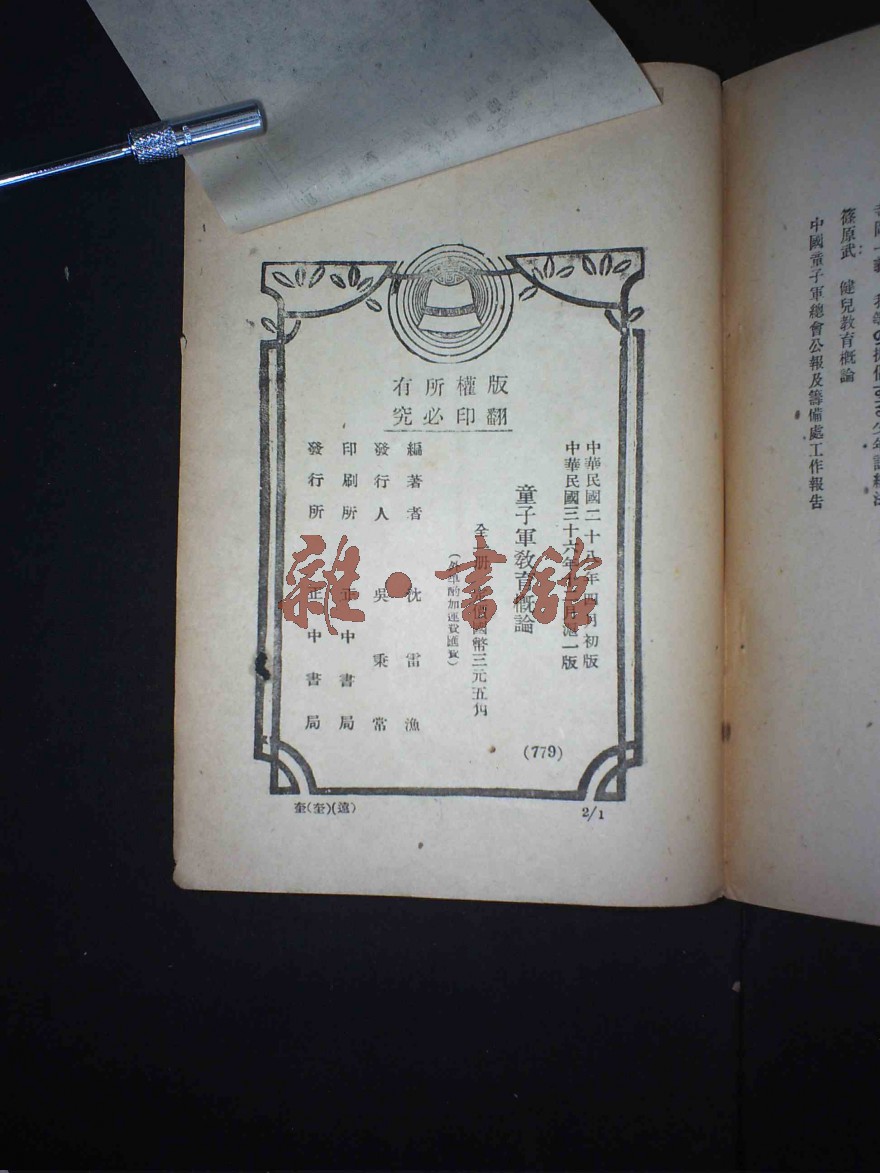 篠原武　健兒教育概論
中國童子軍總會公報及籌備處工作報告
版權所有
翻印必究
中華民國二十八年四月初版
中華民國三十六年 月滬一版
童子軍教育概論
全 册 價國幣三元五角
(外埠酌加運費匯費)
編著者 沈雷漁
發行人 吳秉常
印刷所 正中書局
發行所 正中書局
(779)
奎(奎)(遠)
2/1
雜·書館